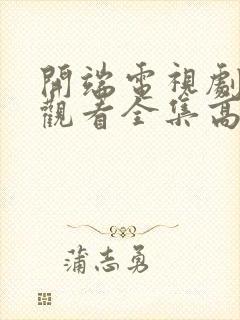 開端電視劇
觀看全集高
蒲志勇